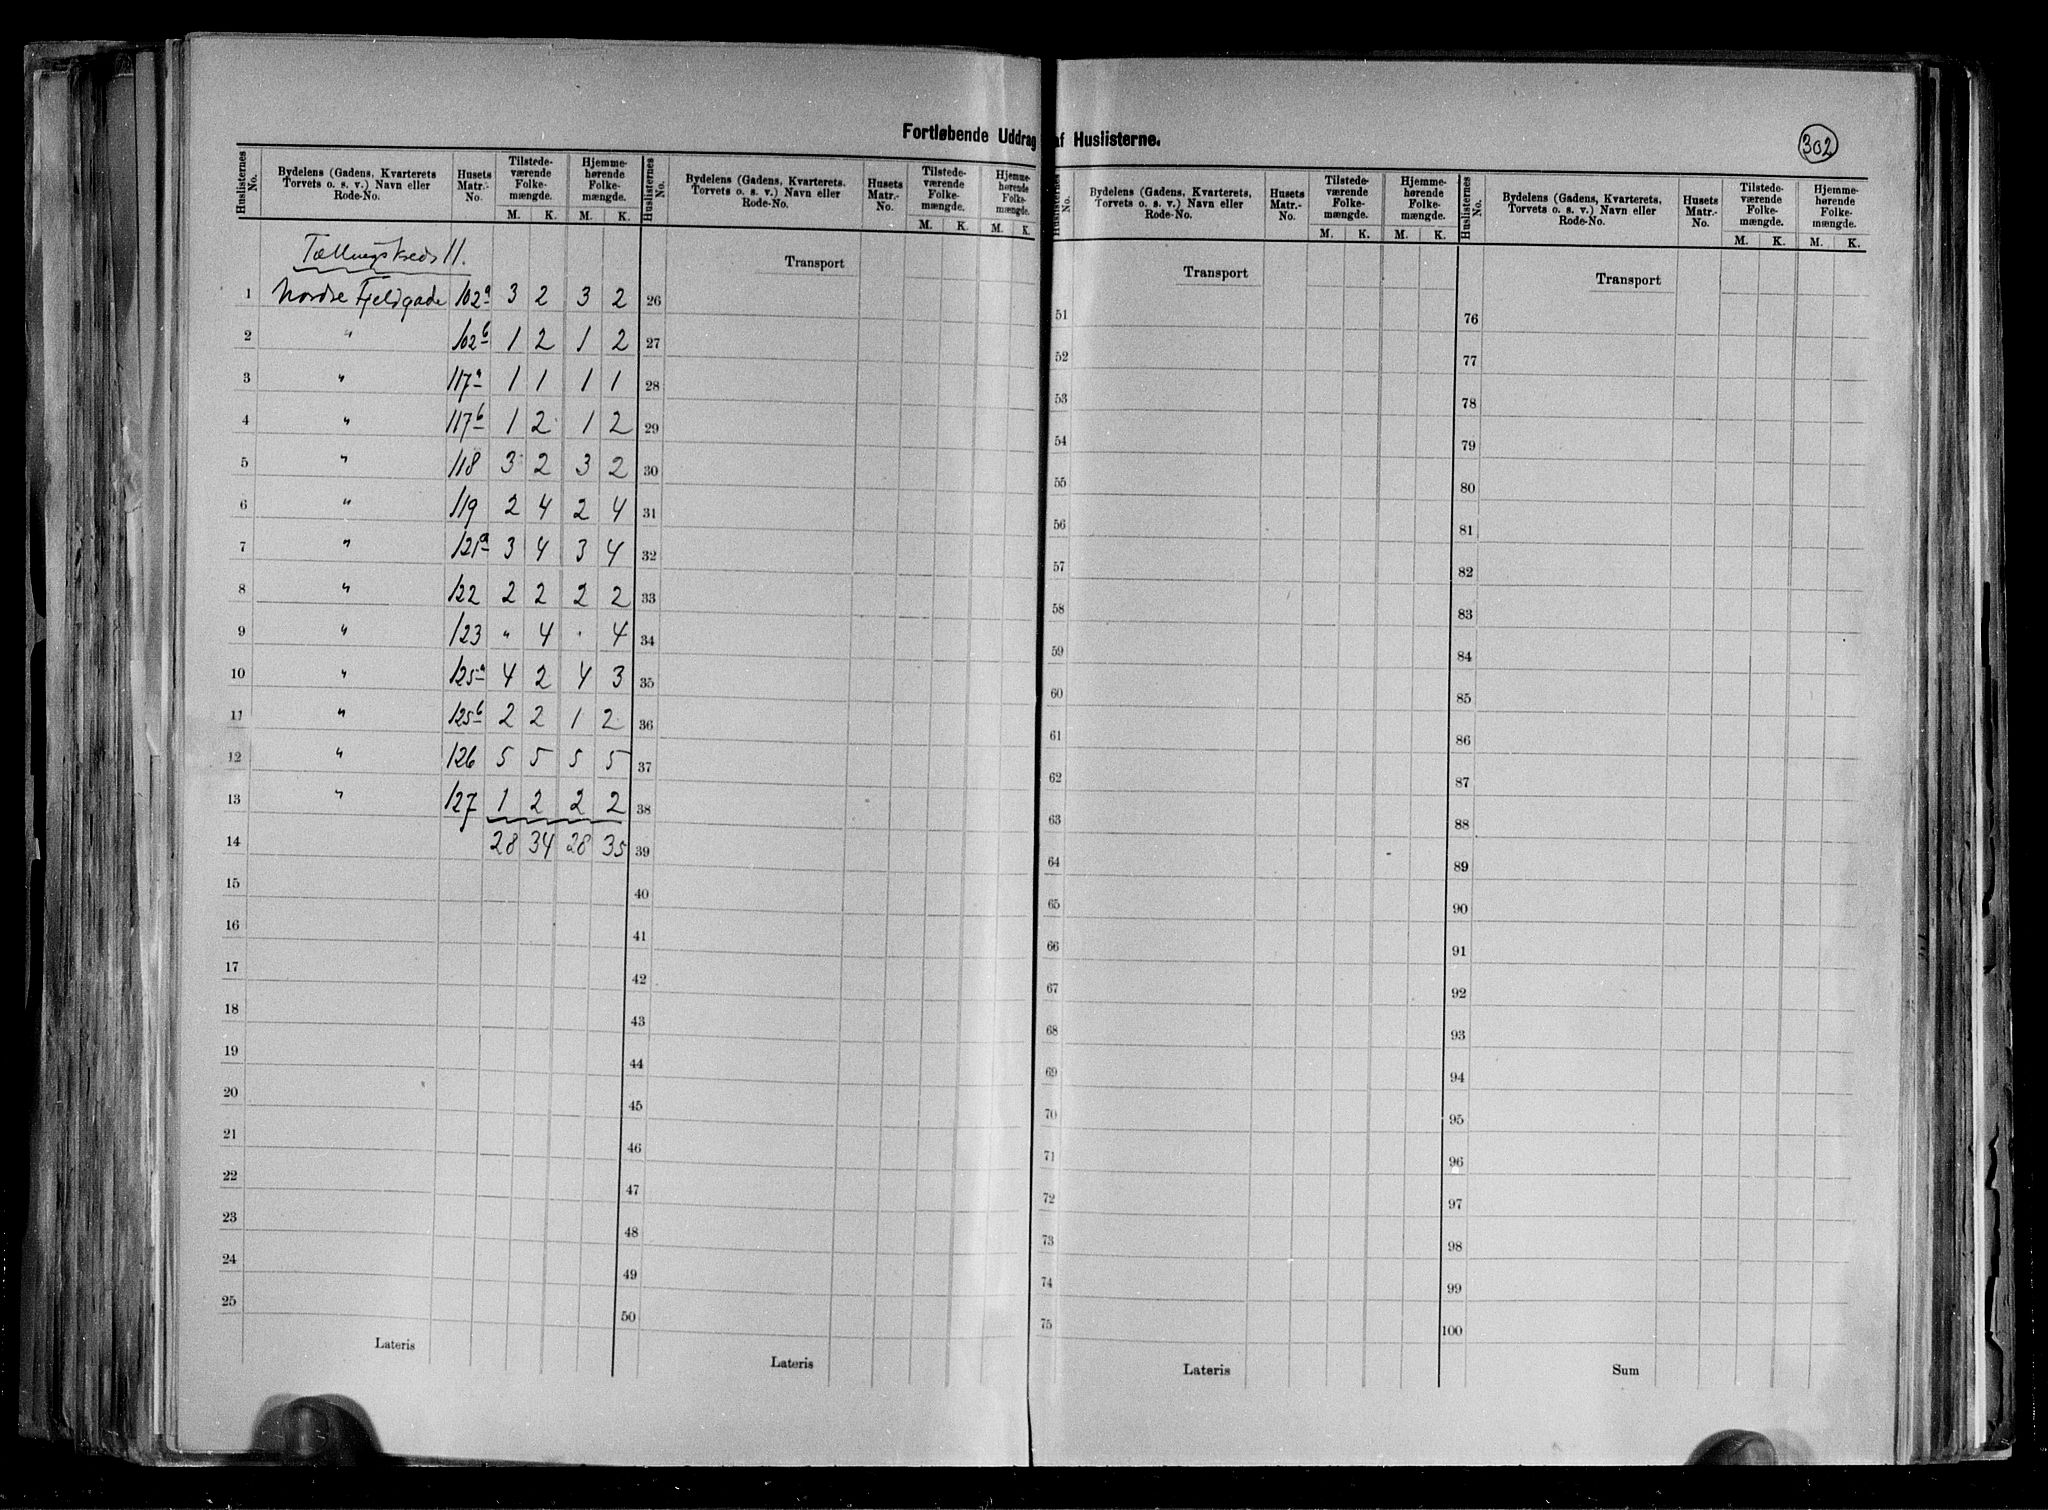 Fortløbende Uddrag af Huslisterne.
302
Huslisternes No. | Bydelens (Gadens, Kvarterets, Torvets o. s. v.) Navn eller Rode-No. | Husets Matr.-No. | Tilstede-værende Folke-mængde. M. K. | Hjemme-hørende Folke-mængde. M. K.
Tællingskreds 11.
1 Nordre Fjeldgade 102a 3 2 3 2
2 " 102b 1 2 1 2
3 " 117a 1 1 1 1
4 " 117b 1 2 1 2
5 " 118 3 2 3 2
6 " 119 2 4 2 4
7 " 121a 3 4 3 4
8 " 122 2 2 2 2
9 " 123 " 4 " 4
10 " 125a 4 2 4 3
11 " 125b 2 2 1 2
12 " 126 5 5 5 5
13 " 127 1 2 2 2
14 28 34 28 35
15
16
17
18
19
20
21
22
23
24
25
Lateris
Huslisternes No. | Bydelens (Gadens, Kvarterets, Torvets o. s. v.) Navn eller Rode-No. | Husets Matr.-No. | Tilstede-værende Folke-mængde. M. K. | Hjemme-hørende Folke-mængde. M. K.
Transport
26
27
28
29
30
31
32
33
34
35
36
37
38
39
40
41
42
43
44
45
46
47
48
49
50
Lateris
Huslisternes No. | Bydelens (Gadens, Kvarterets, Torvets o. s. v.) Navn eller Rode-No. | Husets Matr.-No. | Tilstede-værende Folke-mængde. M. K. | Hjemme-hørende Folke-mængde. M. K.
Transport
51
52
53
54
55
56
57
58
59
60
61
62
63
64
65
66
67
68
69
70
71
72
73
74
75
Lateris
Huslisternes No. | Bydelens (Gadens, Kvarterets, Torvets o. s. v.) Navn eller Rode-No. | Husets Matr.-No. | Tilstede-værende Folke-mængde. M. K. | Hjemme-hørende Folke-mængde. M. K.
Transport
76
77
78
79
80
81
82
83
84
85
86
87
88
89
90
91
92
93
94
95
96
97
98
99
100
Sum